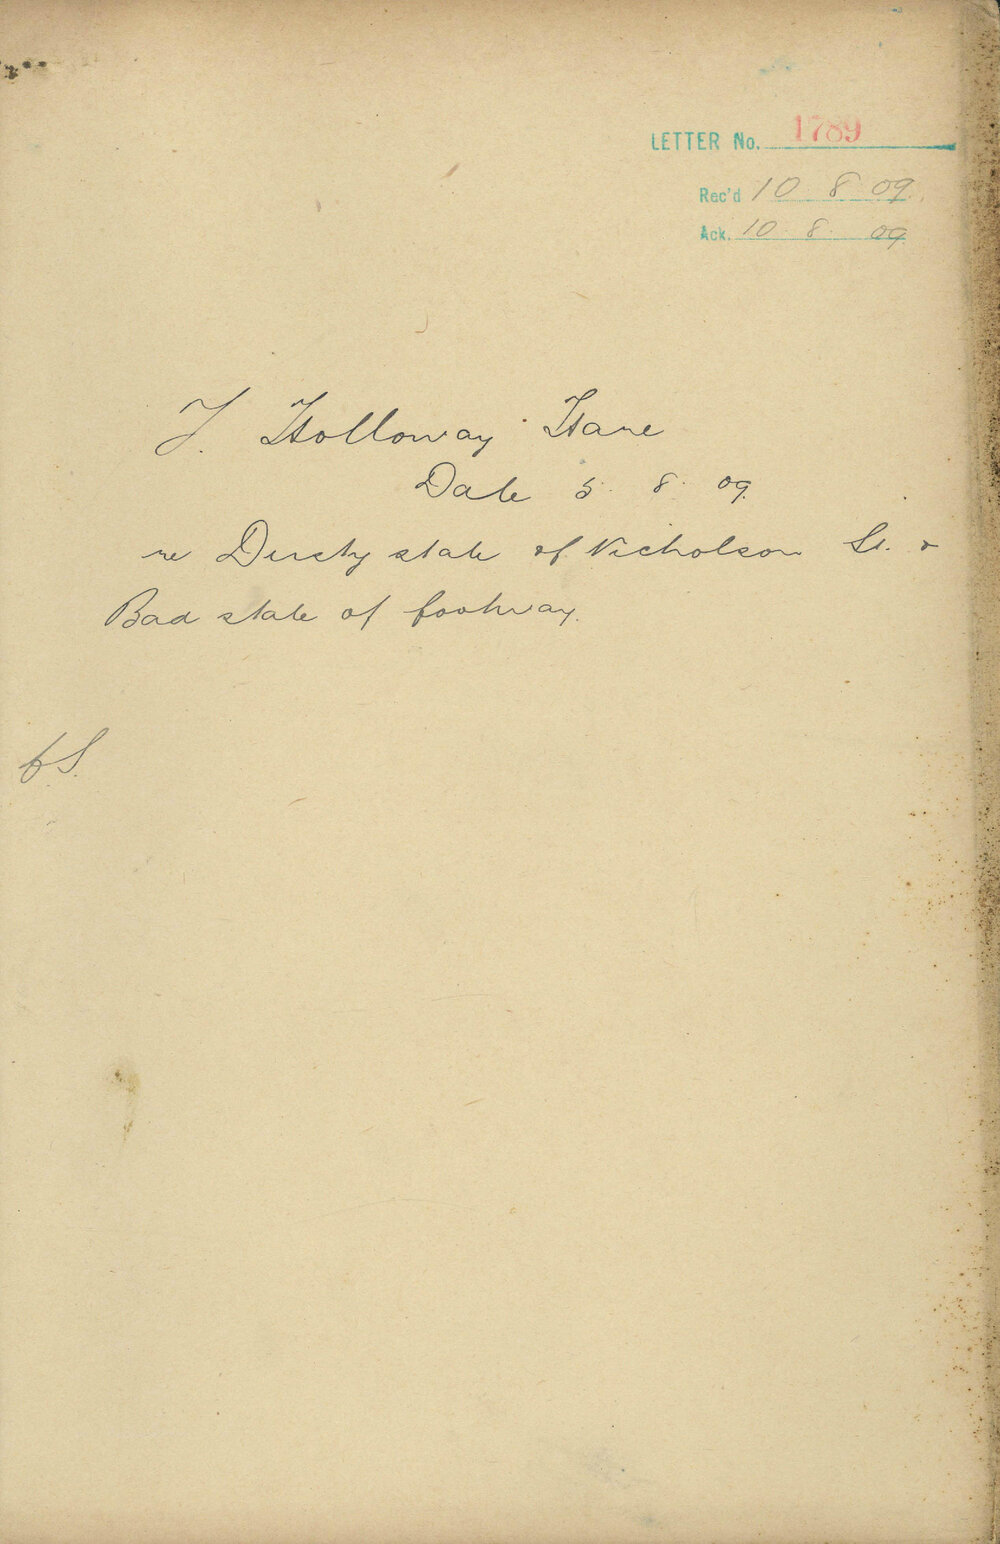 LETTER No. 1789
Rec'd 10 8 09.
Ack. 10. 8. 09
J. Holloway Hare
Date 5. 8. 09.
re Dusty state of Nicholson St. &
Bad state of footway.